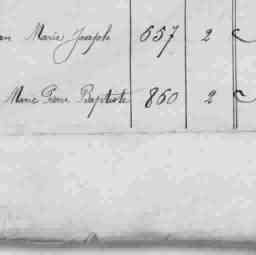 an Marie Joseph 657 2
Marie Pierre Baptiste 860 2